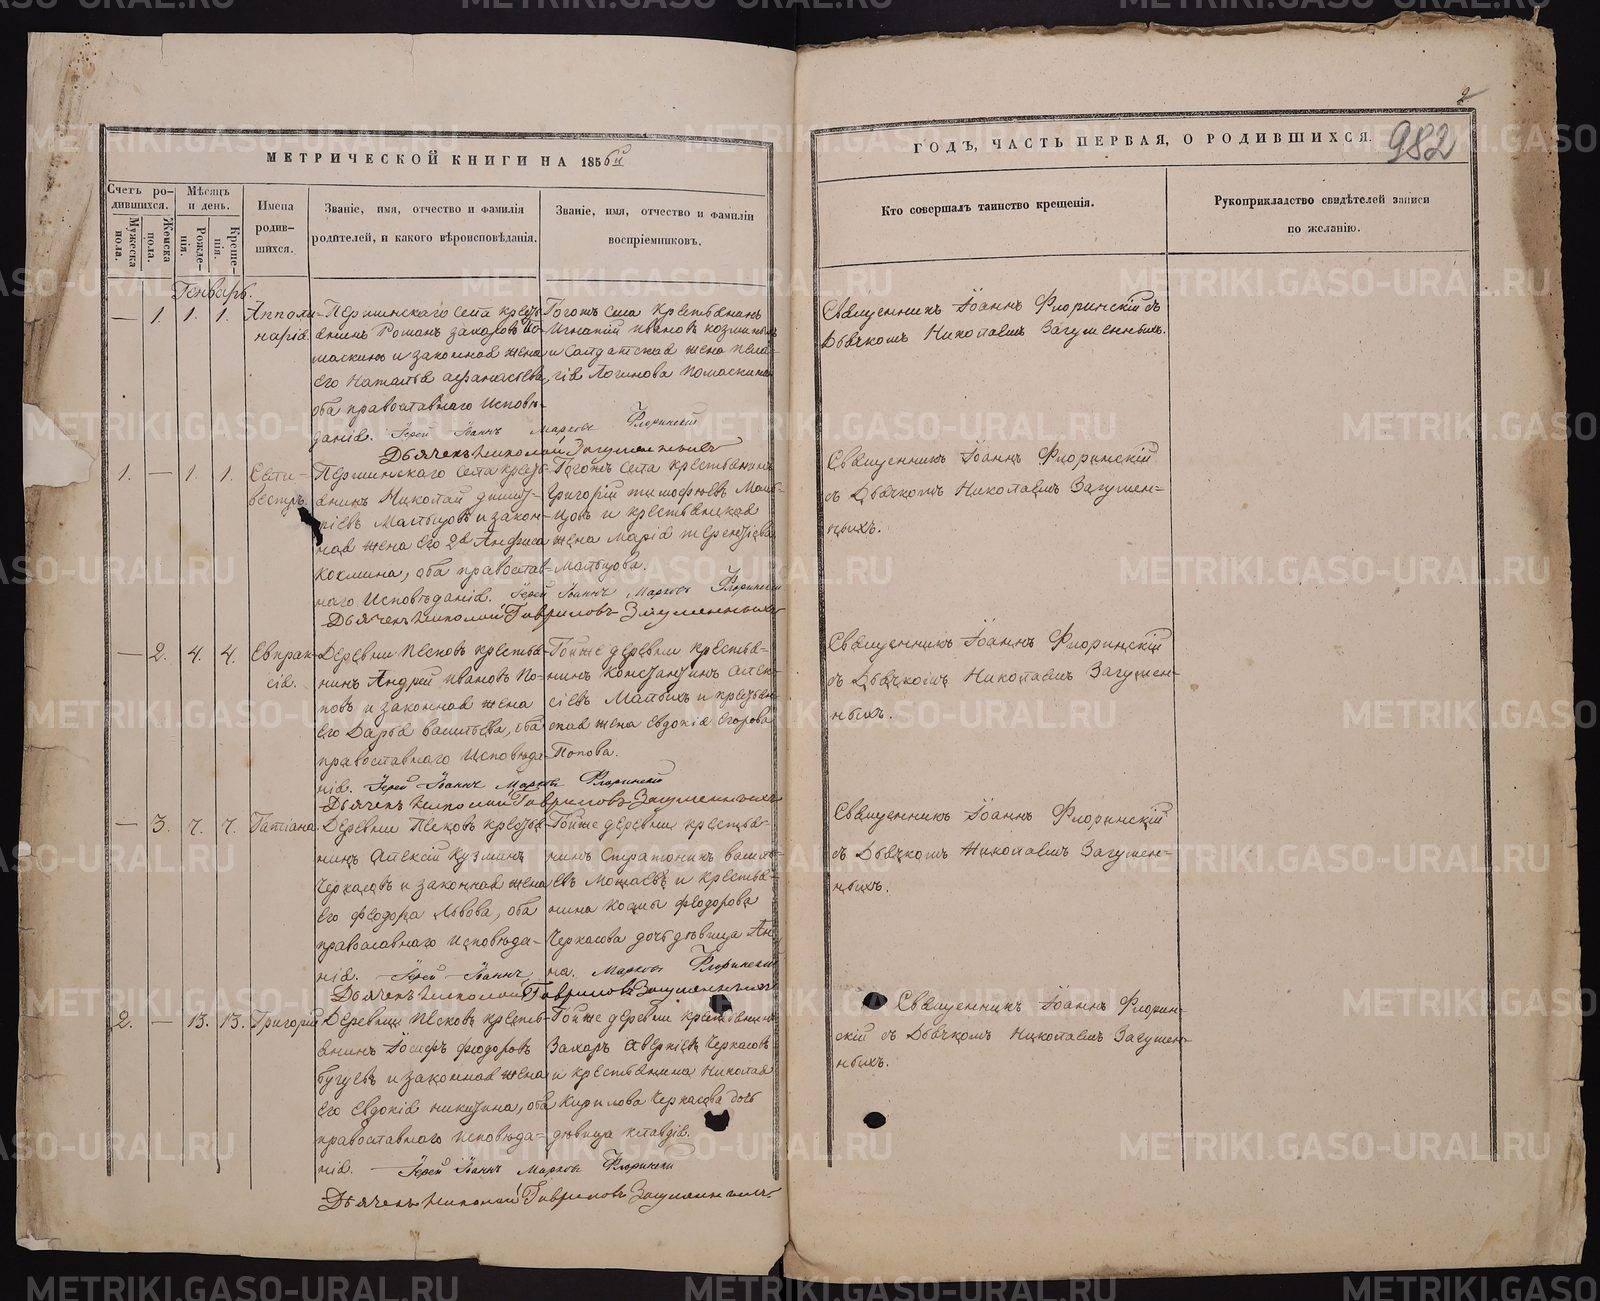 МЕТРИЧЕСКОЙ КНИГИ НА 1856й
Счетъ родившихся.
Мѣсяцъ и день.
Мужеска пола.
Женска пола.
Рожденія.
Крещенія.
Имена родившихся.
Званіе, имя, отчество и фамилія родителей, и какого вѣроисповѣданія.
Званіе, имя, отчество и фамиліи воспріемниковъ.
Генварь.
— 1. 1. 1. Апполинарія
Першинскаго села крестьянинъ Романъ Захаровъ Помаскинъ и законная жена
его Наталья Афанасьева,
оба православнаго исповѣданія.
Тогожъ села крестьянинъ
Игнатій Ивановъ
и солдатская жена Пелагія Логинова Помаскина
Іерей Іоаннъ Марковъ Флоринскій
Дьячекъ Николай Загуменныхъ
1. — 1. 1. Селивестръ
Першинскаго села крестьянинъ Николай
Мальцовъ и законная жена его 2я Анфиса
оба православнаго исповѣданія.
Тогожъ села крестьянинъ
Григорій Тимофеевъ Мальцовъ и крестьянская
жена Марія Терентіева
Мальцова.
Іерей Іоаннъ Марковъ Флоринскій
Дьячекъ Николай Гавриловъ Загуменныхъ
— 2. 4. 4. Евпраксія.
Деревни Песковъ крестьянинъ Андрей Ивановъ Поповъ и законная жена
его Дарья Васильева, оба
православнаго исповѣданія.
Тойже деревни крестьянинъ Константинъ Алексіевъ
и крестьянская жена Евдокія Егорова
Попова.
Іерей Іоаннъ Марковъ Флоринскій
Дьячекъ Николай Гавриловъ Загуменныхъ
— 3. 7. 7. Татіана
Деревни Песковъ крестьянинъ Алексій Кузминъ
Черкасовъ и законная жена
его Феодора Львова, оба
православнаго исповѣданія.
Тойже деревни крестьянинъ Стратоникъ Васильевъ
и крестьянина Космы Феодорова
Черкасова дочь дѣвица Анна.
Іерей Іоаннъ Марковъ Флоринскій
Дьячекъ Николай Гавриловъ Загуменныхъ
2. — 13. 13. Григорій
Деревни Песковъ крестьянинъ Іосифъ Феодоровъ
Бугуевъ и законная жена
его Евдокія Никитина, оба
православнаго исповѣданія.
Тойже деревни крестьянинъ
Захаръ Аверкіевъ Черкасовъ
и крестьянина Николая
Кирилова Черкасова дочь
дѣвица Клавдія.
Іерей Іоаннъ Марковъ Флоринскій
Дьячекъ Николай Гавриловъ Загуменныхъ
2
ГОДЪ, ЧАСТЬ ПЕРВАЯ, О РОДИВШИХСЯ.
982
Кто совершалъ таинство крещенія.
Рукоприкладство свидѣтелей записи
по желанію.
Священникъ Іоаннъ Флоринскій съ
Дьячкомъ Николаемъ Загуменныхъ.
Священникъ Іоаннъ Флоринскій
съ Дьячкомъ Николаемъ Загумен=
ныхъ.
Священникъ Іоаннъ Флоринскій
съ Дьячкомъ Николаемъ Загумен=
ныхъ.
Священникъ Іоаннъ Флоринскій
съ Дьячкомъ Николаемъ Загумен=
ныхъ.
Священникъ Іоаннъ Флорин=
скій съ Дьячкомъ Николаемъ Загумен=
ныхъ.
METRIKI.GASO-URAL.RU